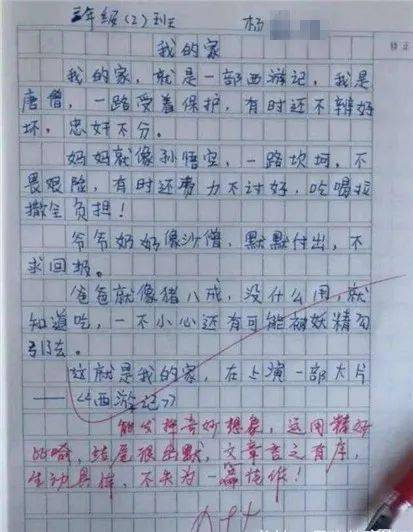 三年级(2)班 杨
我的家
我的家,就是一部西游记,我是
唐僧,一路受着保护,有时还不辨好
坏,忠奸不分。
妈妈就像孙悟空,一路坎坷,不
畏艰险,有时还费力不讨好,吃喝拉
撒全负担!
爷爷奶奶像沙僧,默默付出,不
求回报。
爸爸就像猪八戒,没什么用,就
知道吃,一不小心还有可能被妖精勾
引去。
这就是我的家,在上演一部大片
——《西游记》
能发挥奇妙想象,运用精妙
比喻,结尾很幽默,文章言之有序,
生动具体,不失为一篇佳作!